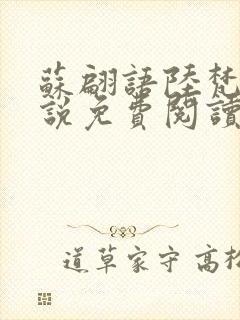 蘇翩語陸梵
說免費閱讀
道草家守 高松